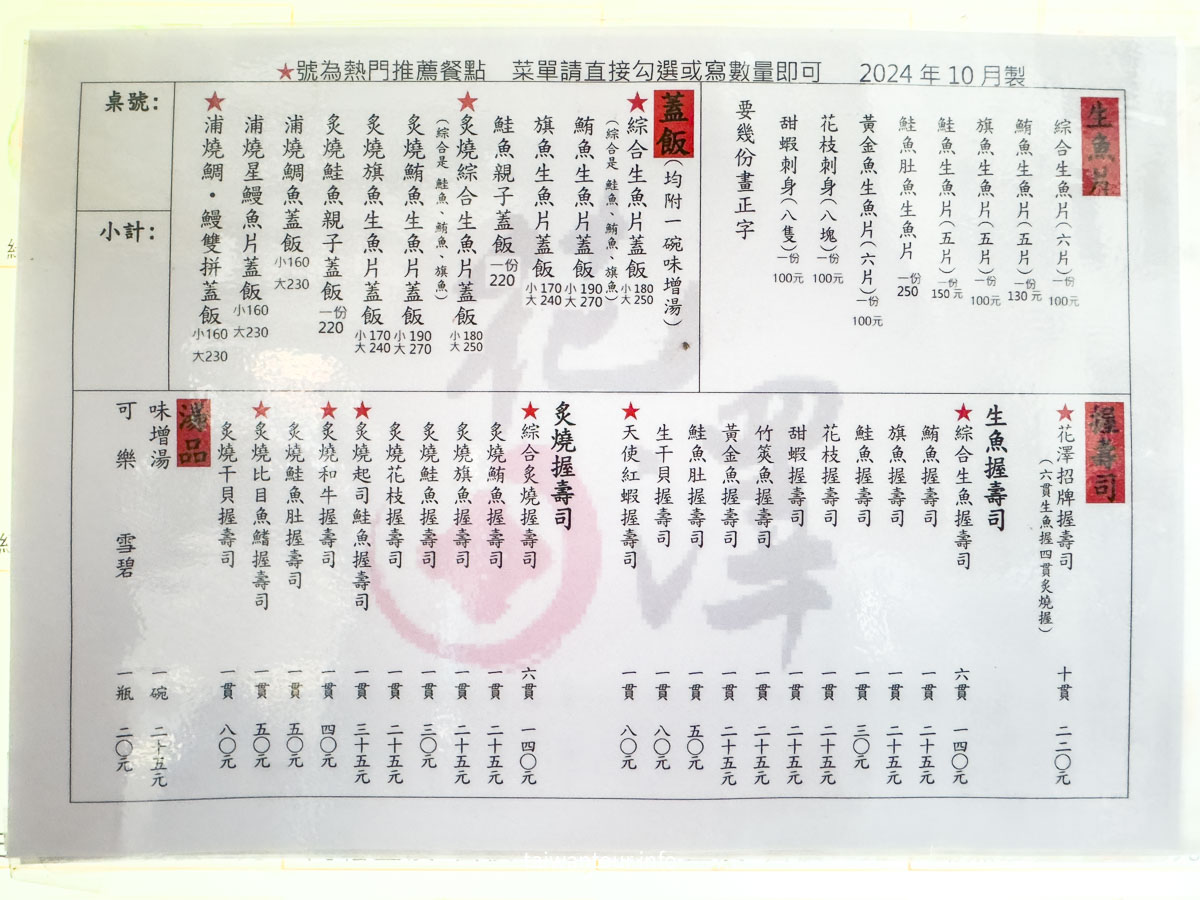 ★號為熱門推薦餐點 菜單請直接勾選或寫數量即可 2024 年 10 月製
生魚片
綜合生魚片(六片)一份100元
鮪魚生魚片(五片)一份130元
旗魚生魚片(五片)一份100元
鮭魚生魚片(五片)一份150元
鮭魚肚魚生魚片 一份250
黃金魚生魚片(六片)一份100元
花枝刺身(八塊)一份100元
甜蝦刺身(八隻)一份100元
要幾份畫正字
蓋飯(均附一碗味增湯)
★綜合生魚片蓋飯 小180 大250
(綜合是 鮭魚、鮪魚、旗魚)
鮪魚生魚片蓋飯 小190 大270
旗魚生魚片蓋飯 小170 大240
鮭魚親子蓋飯 一份220
★炙燒綜合生魚片蓋飯 小180 大250
(綜合是 鮭魚、鮪魚、旗魚)
炙燒鮪魚生魚片蓋飯 小190 大270
炙燒旗魚生魚片蓋飯 小170 大240
炙燒鮭魚親子蓋飯 一份220
浦燒鯛魚蓋飯 小160 大230
浦燒星鰻魚片蓋飯 小160 大230
★浦燒鯛·鰻雙拼蓋飯 小160 大230
桌號:
小計:
握壽司
★花澤招牌握壽司 十貫 二二〇元
(六貫生魚握四貫炙燒握)
生魚握壽司
★綜合生魚握壽司 六貫 一四〇元
鮪魚握壽司 一貫 二十五元
旗魚握壽司 一貫 二十五元
鮭魚握壽司 一貫 三〇元
花枝握壽司 一貫 二十五元
甜蝦握壽司 一貫 二十五元
竹筴魚握壽司 一貫 二十五元
黃金魚握壽司 一貫 二十五元
鮭魚肚握壽司 一貫 五〇元
生干貝握壽司 一貫 八〇元
★天使紅蝦握壽司 一貫 八〇元
炙燒握壽司
★綜合炙燒握壽司 六貫 一四〇元
炙燒鮪魚握壽司 一貫 二十五元
炙燒旗魚握壽司 一貫 二十五元
炙燒鮭魚握壽司 一貫 三〇元
炙燒花枝握壽司 一貫 二十五元
★炙燒起司鮭魚握壽司 一貫 三十五元
★炙燒和牛握壽司 一貫 四〇元
炙燒鮭魚肚握壽司 一貫 五〇元
★炙燒比目魚鰭握壽司 一貫 五〇元
炙燒干貝握壽司 一貫 八〇元
湯品
味增湯 一碗 二十五元
可樂 雪碧 一瓶 二〇元
花澤
taiwantour.info